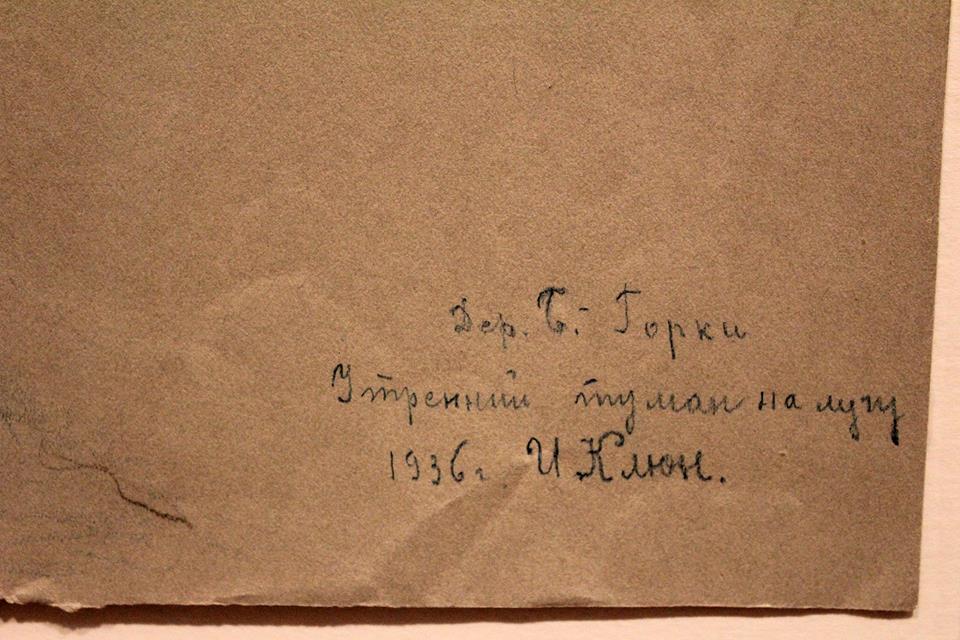 Дер. Б.- Горки
Утренний туман на лугу
1936г. И Клюн.